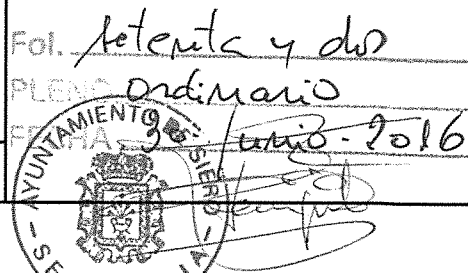 Fol. setenta y dos
PLENO Ordinario
FECHA 30 / Junio - 2016
AYUNTAMIENTO DE SIERO